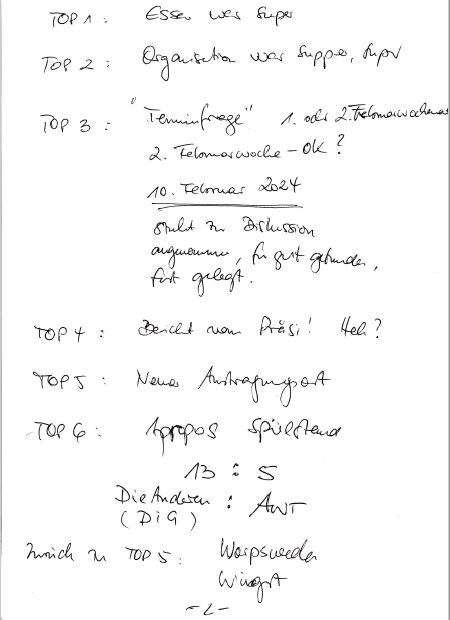 TOP 1: Essen war super
TOP 2: Organisation war suppa, supa
TOP 3: "Terminfrage" 1. oder 2. Februarwochenende
2. Februarwoche - OK?
10. Februar 2024
steht zu Diskussion
angenommen, für gut gefunden,
fest gelegt.
TOP 4: Bericht vom Präsi! Heli?
TOP 5: Neuer Austragungsort
TOP 6: Apropos Spielstand
13 : 5
Die Anderen : AWT
(DiG)
Zurück zu TOP 5: Worpsweder
- 2 -